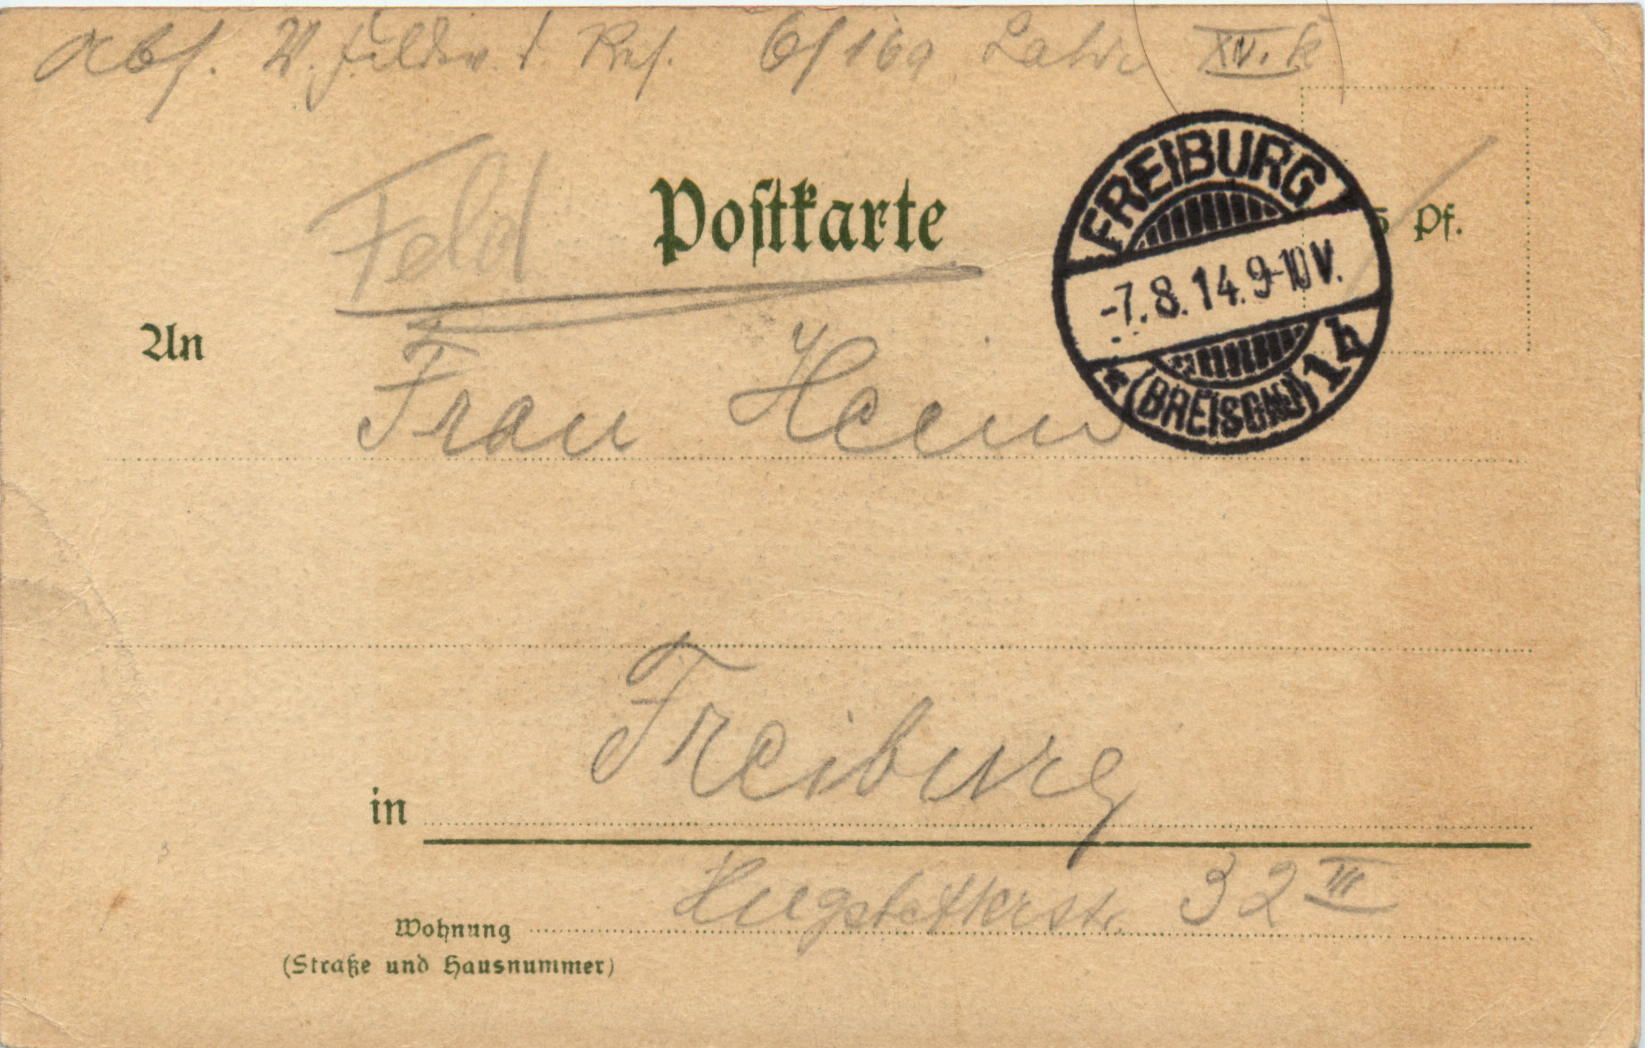 Abs. W. d. Res. 6/169 Lahr XIV. K
Feld Postkarte
FREIBURG
-7.8.14.9-10V.
(BREISGAU) 1h
5 Pf.
An Frau Heim
in Freiburg
Wohnung Hugstetterstr. 32 III
(Straße und Hausnummer)